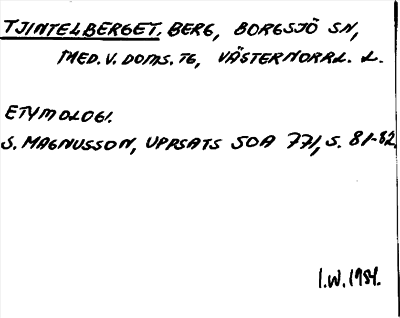 TJINTELBERGET, BERG, BORGSJÖ SN,
MED. V. DOMS. TG, VÄSTERNORRL. L.
ETYMOLOGI.
S. MAGNUSSON, UPPSATS SOA 771, S. 81-82.
I.W. 1984.